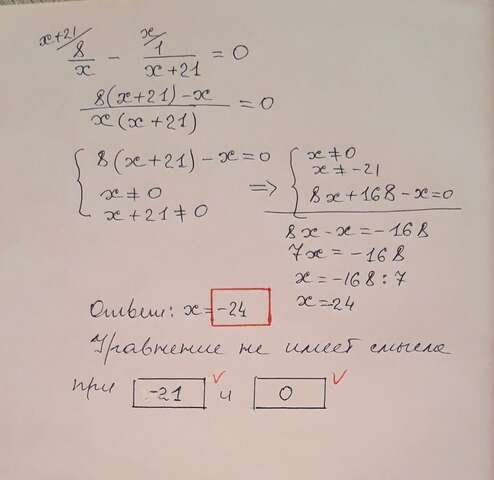 x+21/ 8/x − x/ 1/(x+21) = 0
8(x+21)−x / x(x+21) = 0
{ 8(x+21)−x=0
x≠0
x+21≠0
=> { x≠0
x≠−21
8x+168−x=0
8x−x=−168
7x=−168
x=−168:7
x=−24
Ответ: x=−24
Уравнение не имеет смысла
при −21 и 0